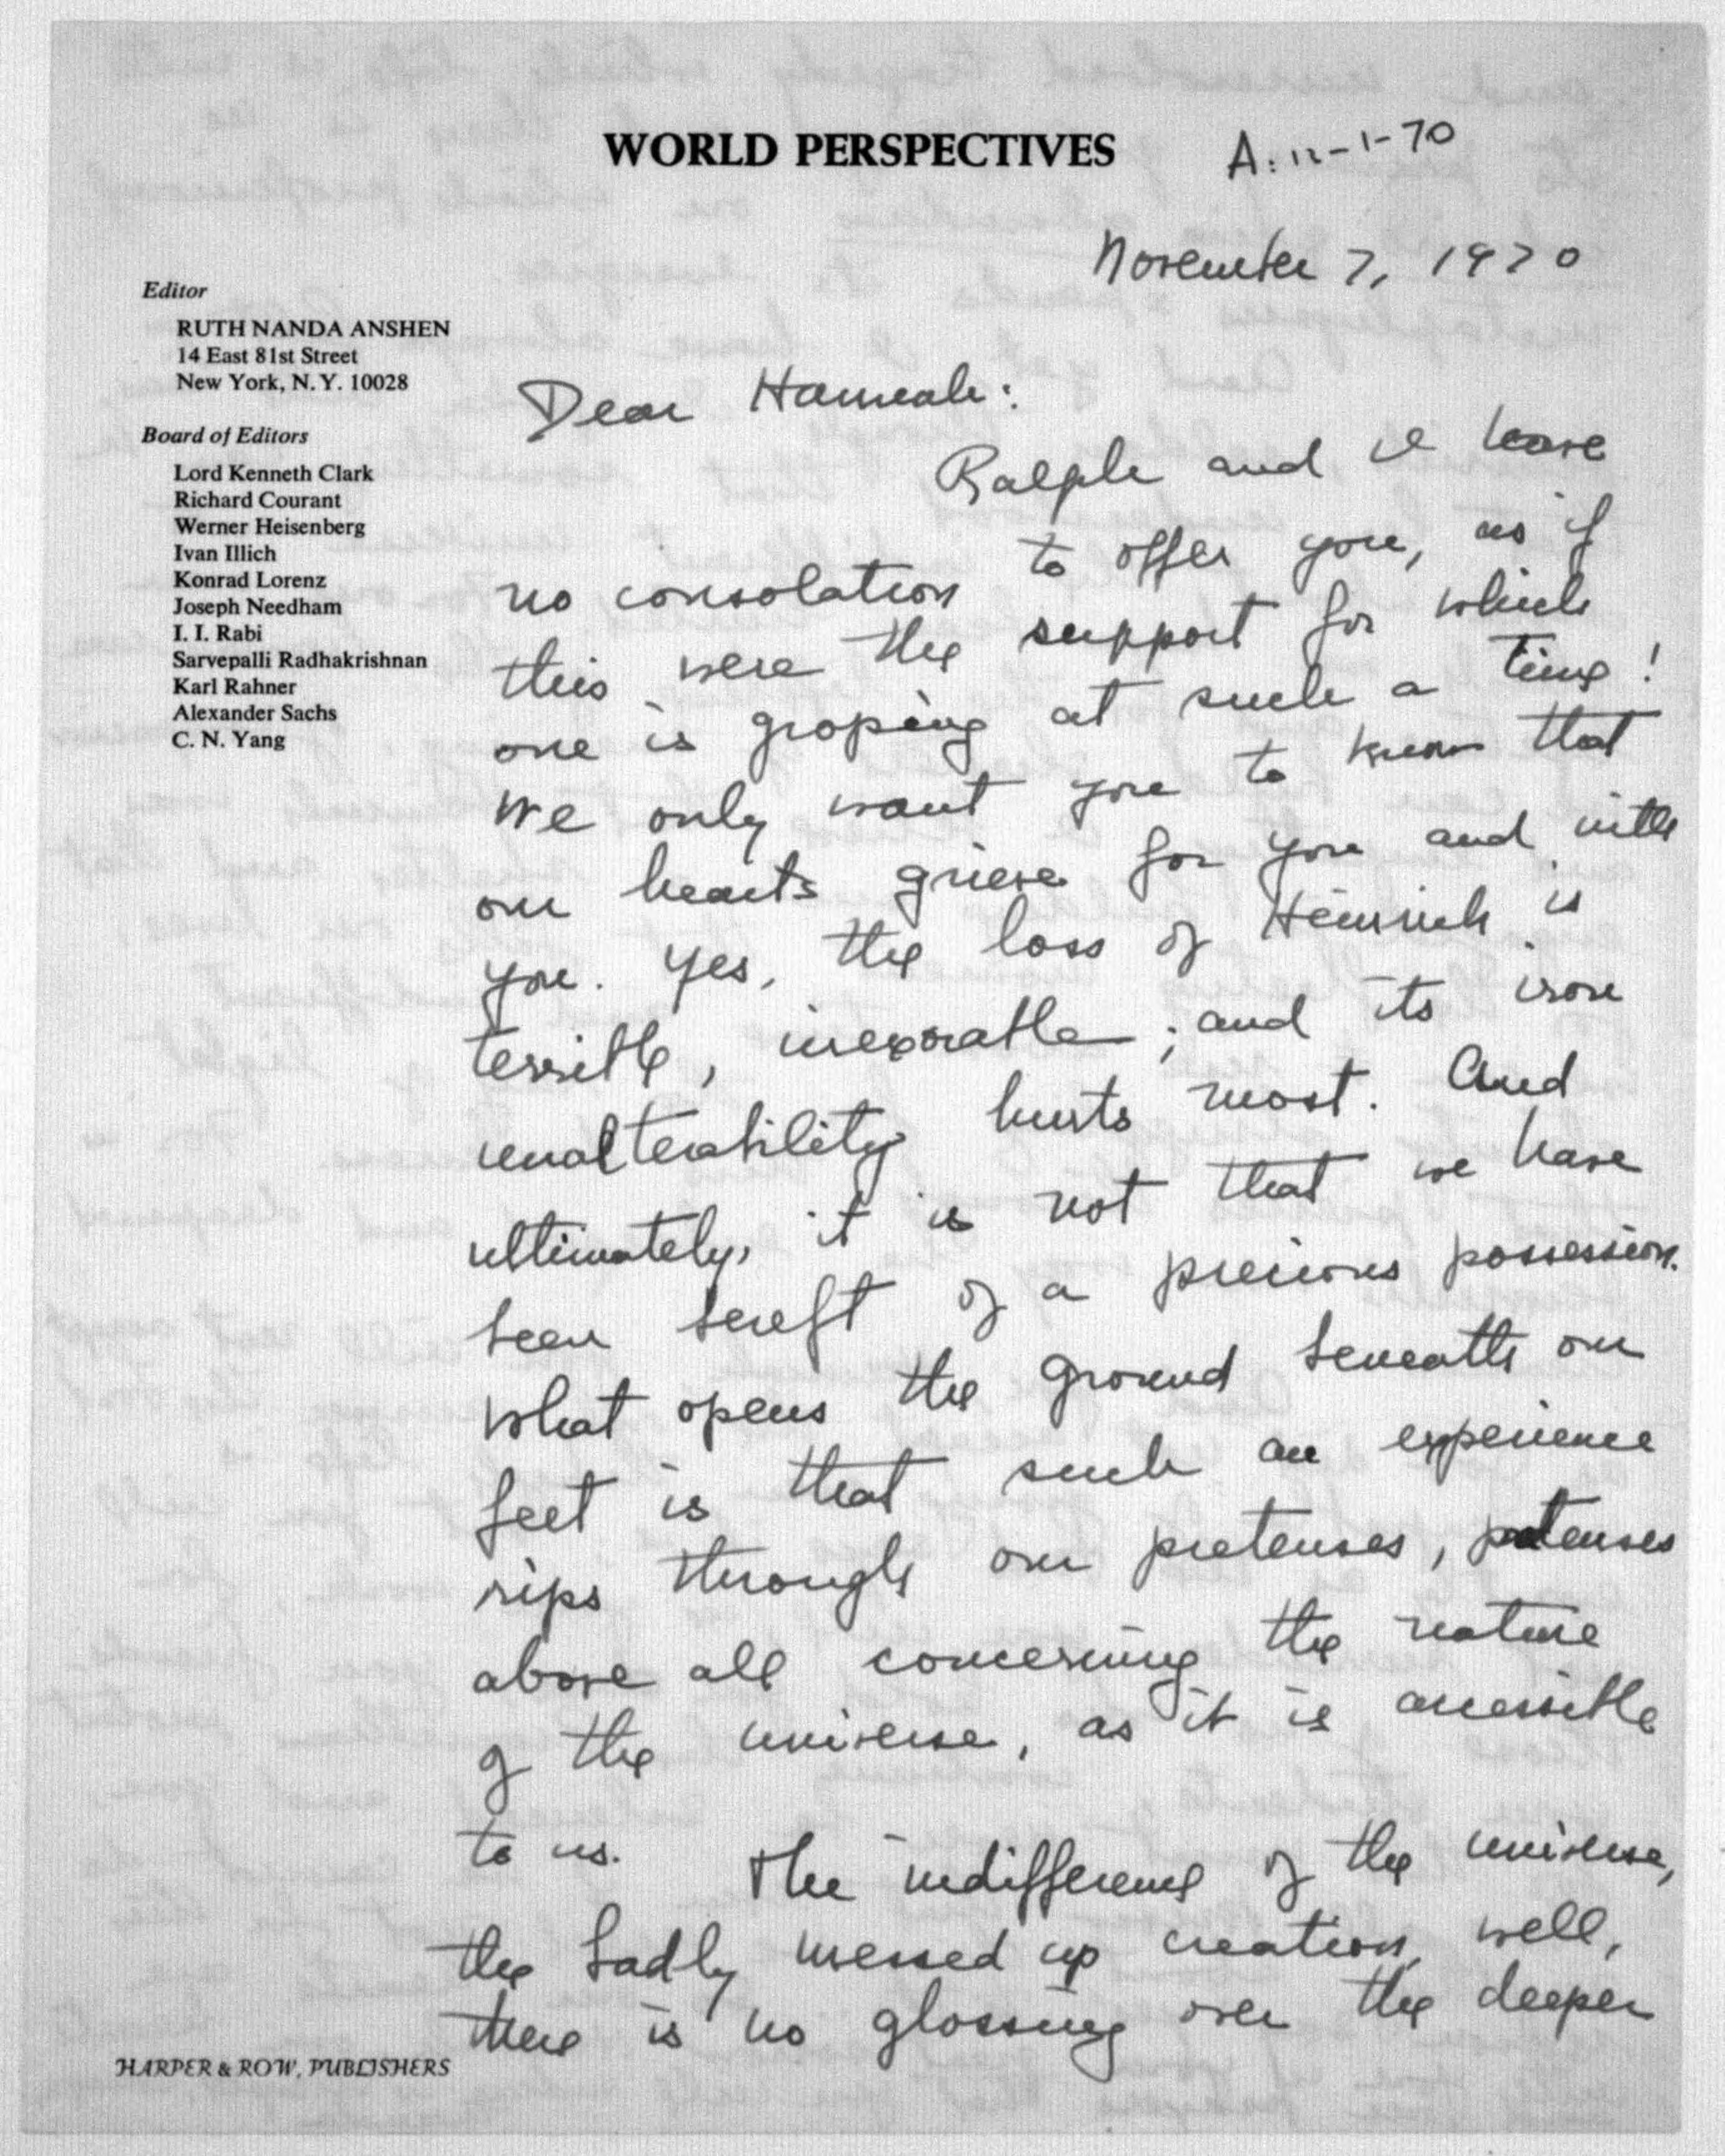 WORLD PERSPECTIVES
A: 12-1-70
November 7, 1970
Editor
RUTH NANDA ANSHEN
14 East 81st Street
New York, N.Y. 10028
Board of Editors
Lord Kenneth Clark
Richard Courant
Werner Heisenberg
Ivan Illich
Konrad Lorenz
Joseph Needham
I. I. Rabi
Sarvepalli Radhakrishnan
Karl Rahner
Alexander Sachs
C. N. Yang
Dear Hannah:
Ralph and I have
no consolation to offer you, as if
this were the support for which
one is groping at such a time!
We only want you to know that
our hearts grieve for you and with
you. Yes, the loss of Heinrich is
terrible, inexorable; and its iron
unalterability hurts most. And
ultimately, it is not that we have
been bereft of a precious possession.
What opens the ground beneath our
feet is that such an experience
rips through our pretenses, pretenses
above all concerning the nature
of the universe, as it is accessible
to us. The indifference of the universe,
the badly messed up creation, well,
there is no glossing over the deeper
HARPER & ROW, PUBLISHERS